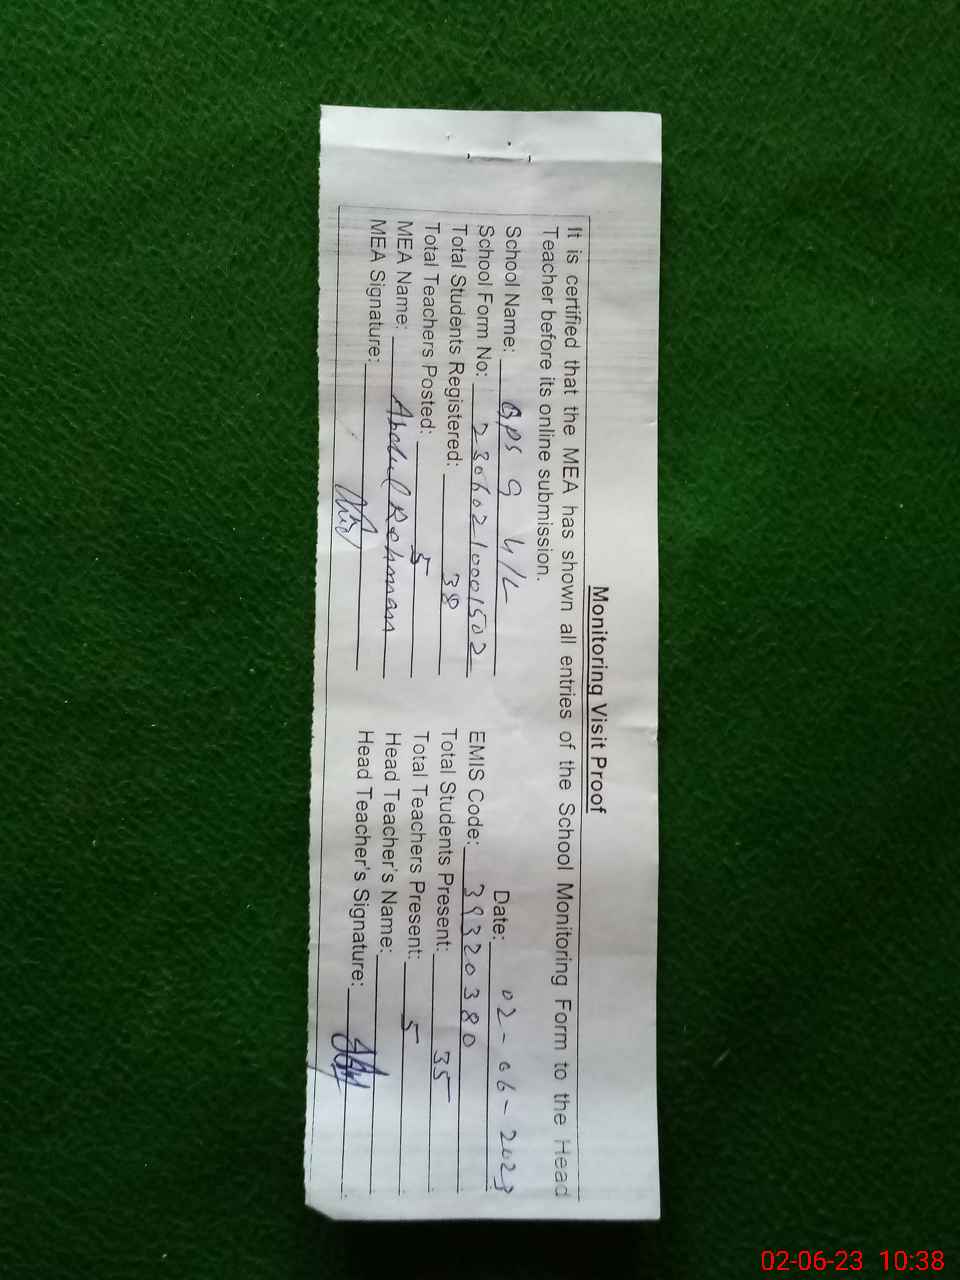 Monitoring Visit Proof
It is certified that the MEA has shown all entries of the School Monitoring Form to the Head
Teacher before its online submission.
School Name: GPS 9 4/L Date: 02-06-2023
School Form No: 23060210001502 EMIS Code: 39320380
Total Students Registered: 38 Total Students Present: 35
Total Teachers Posted: 5 Total Teachers Present: 5
MEA Name: Abdul Rehman Head Teacher's Name:
MEA Signature: Head Teacher's Signature:
02-06-23 10:38